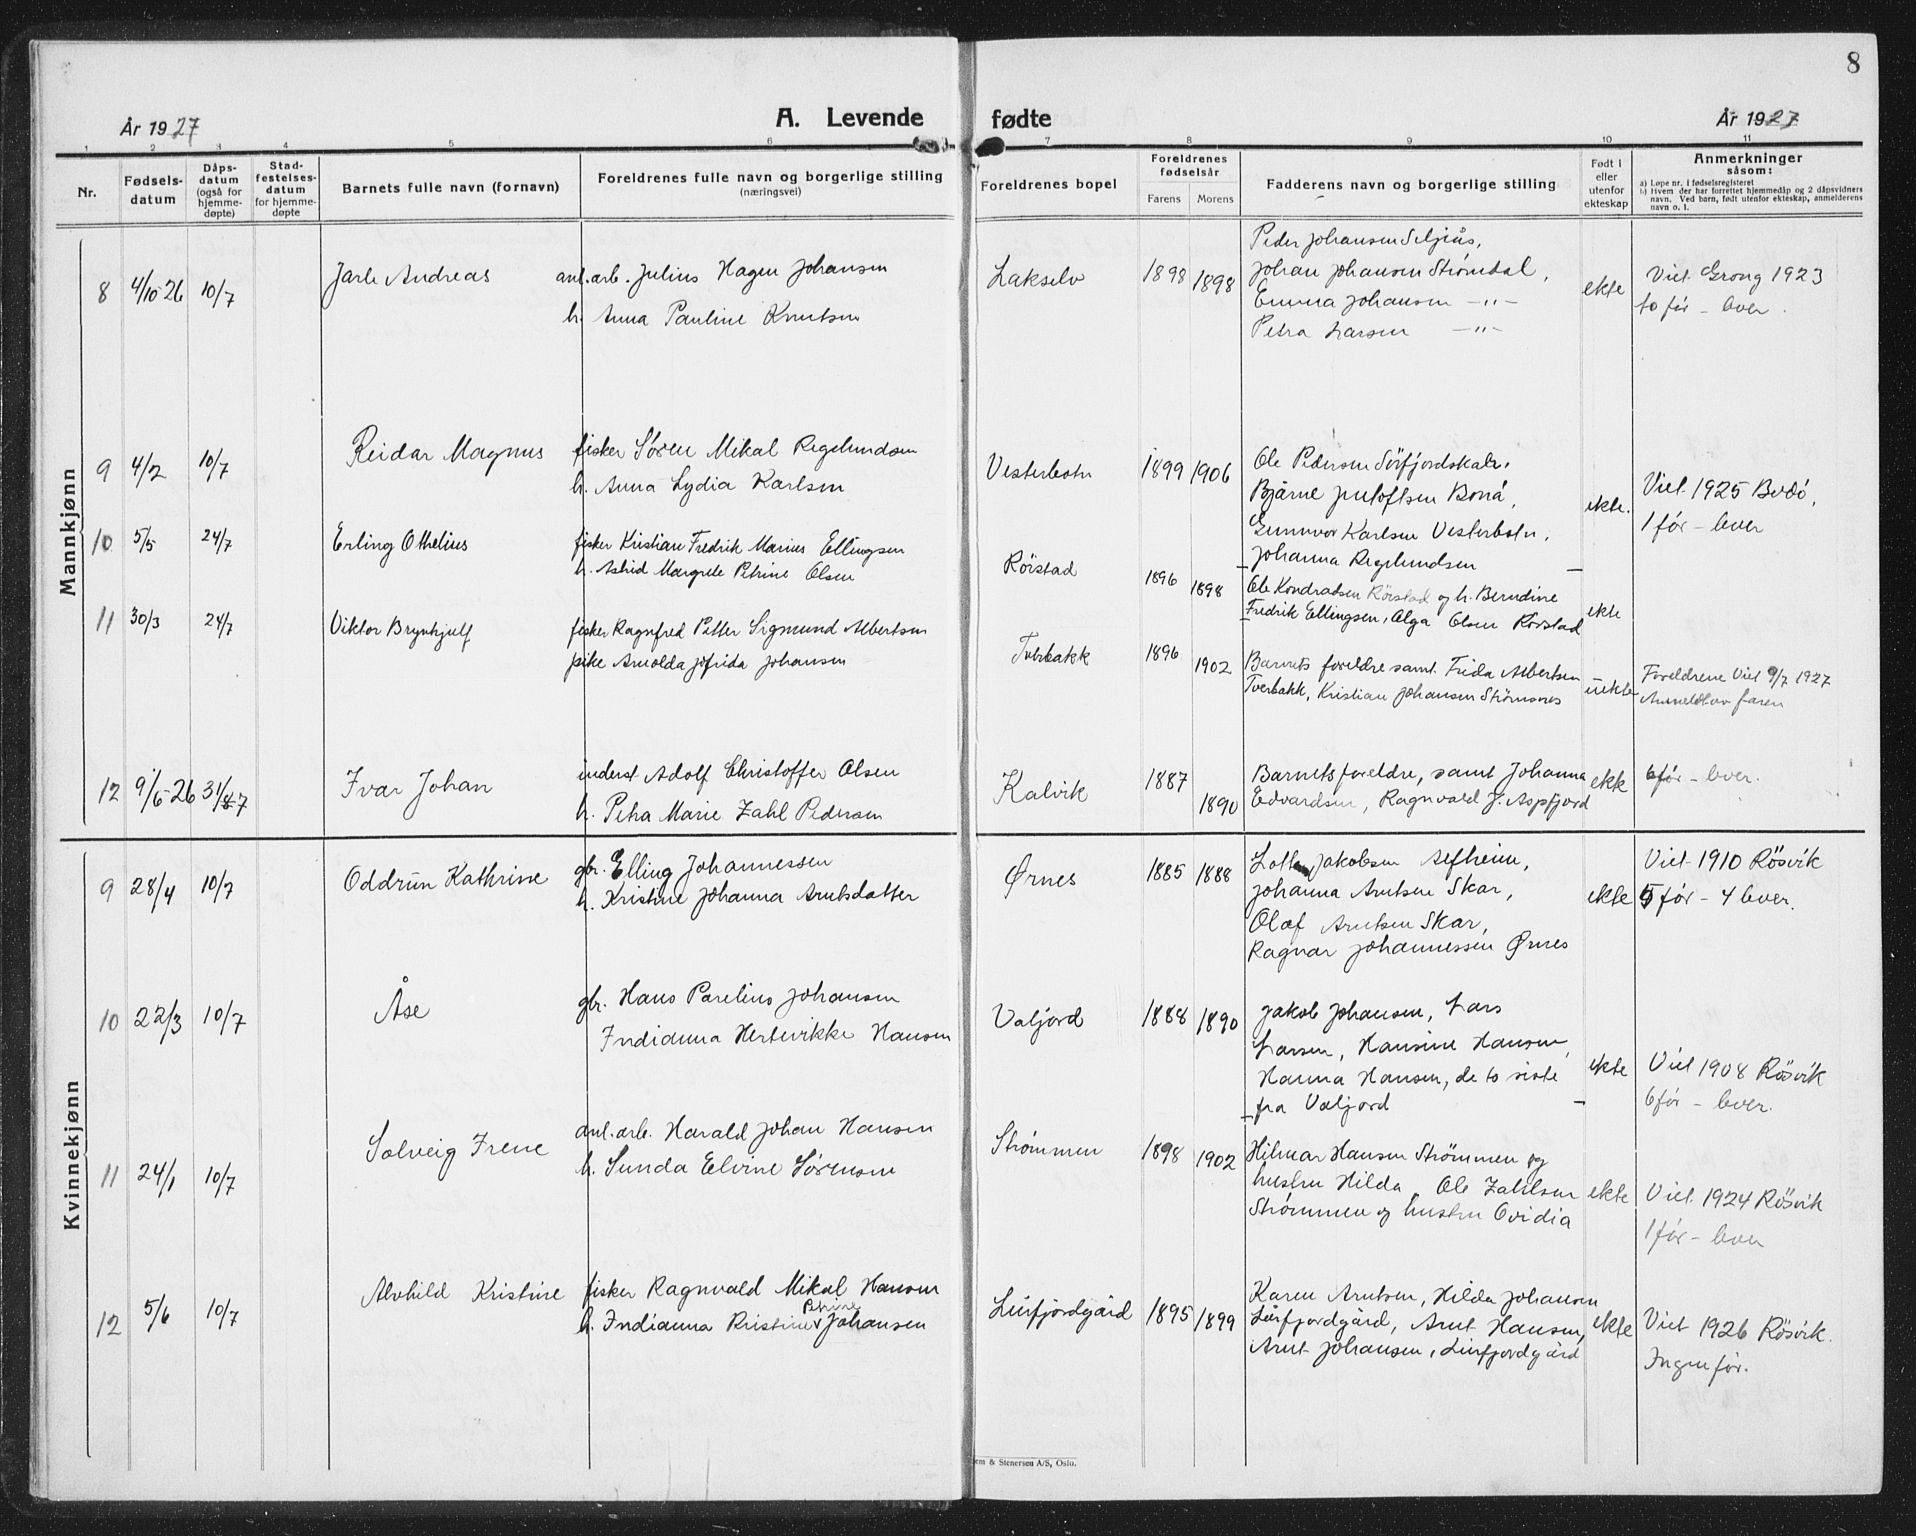 8
År 1927
A. Levende
fødte
År 1927
1 2 3 4 5 6 7 8 9 10 11
Nr.
Fødsels-
datum
Dåps-
datum
(også for
hjemme-
døpte)
Stad-
festelses-
datum
for hjemme-
døpte
Barnets fulle navn (fornavn)
Foreldrenes fulle navn og borgerlige stilling
(næringsvei)
Foreldrenes bopel
Foreldrenes
fødselsår
Farens Morens
Fadderens navn og borgerlige stilling
Født i
eller
utenfor
ekteskap
Anmerkninger
såsom:
a) Løpe nr. i fødselsregisteret
b) Hvem der har forrettet hjemmedåp og 2 dåpsvidners
navn. Ved barn, født utenfor ekteskap, anmelderens
navn o. l.
Mannkjønn
8 4/10-26 10/7 Jarle Andreas
anl.arb. Julius Hagen Johansen
h. Anna Pauline Knutsen
Lakselv 1898 1898
Peder Johansen
Johan Johansen Strømdal,
Emma Johansen -"-
Petra Larsen -"-
ekte
Viet Grong 1923
to før - lever.
9 4/2 10/7 Reidar Magnus
fisker Søren Mikal Regelundsen
h. Anna Lydia Karlsen
Vesterbotn 1899 1906
Ole Pedersen
Bjarne
Gunnvor Karlsen Vesterbotn,
Johanna Regelundsen
ekte.
Viet 1925 Bodö,
1 før - lever
10 5/5 24/7 Erling Othelius
fisker Kristian Fredrik Marius Ellingsen
h. Astrid Margrete Petrine Olsen
Rörstad 1896 1898
Ole Kondradsen Rörstad og h. Berndine
Fredrik Ellingsen, Olga Olsen Rörstad
ekte
11 30/3 24/7 Viktor Brynhjulf
fisker Ragnfred Petter Sigmund Albertsen
pike Arnolda Jofrida Johansen
Tverbakk 1896 1902
Barnets foreldre samt Frida Albertsen
Tverbakk, Kristian Johansen Strømsnes
uekte
Foreldrene Viet 9/7 1927
Anmeldt av faren
12 9/6-26 31/7 Ivar Johan
inderst Adolf Christoffer Olsen
h. Petra Marie Zahl Pedersen
Kalvik 1887 1890
Barnets foreldre, samt Johanna
Edvardsen, Ragnvald J. Aspfjord
ekte
6 før - lever.
Kvinnekjønn
9 28/4 10/7 Oddrun Kathrine
gbr. Elling Johannessen
h. Kristine Johanna Arntsdatter
Ørnes 1885 1888
Lotte Jakobsen Alfheim,
Johanna Arntsen Skar,
Olaf Arntsen Skar,
Ragnar Johannessen Ørnes
ekte
Viet 1910 Rösvik
5 før - 4 lever.
10 22/3 10/7 Åse
gbr. Hans Parelius Johansen
Indianna Hertevikke Hansen
Valjord 1888 1890
Jakob Johansen, Lars
Larsen, Hansine Hansen,
Hanna Hansen, de to siste
fra Valjord
ekte
Viet 1908 Rösvik
6 før - lever.
11 24/1 10/7 Solveig Irene
anl.arb. Harald Johan Hansen
h. Sunda Elvine Sørensen
Strømmen 1898 1902
Hilmar Hansen Strømmen og
hustru Hilda, Ole Zahlsen
Strømmen og hustru Ovidia
ekte
Viet 1924 Rösvik
1 før - lever
12 5/6 10/7 Alvhild Kristine
fisker Ragnvald Mikal Hansen
Petrine
h. Indianna Kristine Johansen
Leirfjordgård 1895 1899
Karen Arntsen, Hilda Johansen
Leirfjordgård, Arnt Hansen,
Arnt Johansen, Leirfjordgård
ekte
Viet 1926 Rösvik.
Ingen før.
em & Stenersen A/S, Oslo.